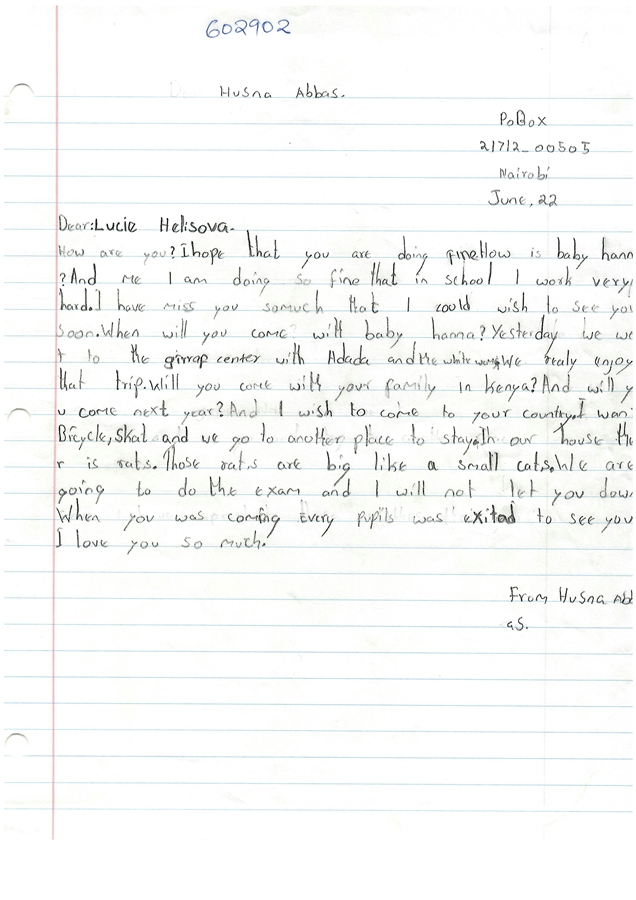 602902
Husna Abbas.
PoBox
21712_00505
Nairobi
June, 22
Dear:Lucie Helisova.
How are you? Ihope that you are doing fineHow is baby hann
?And me I am doing so fine that in school I work very
hard.I have miss you somuch that I could wish to see you
soon.When will you come with baby hanna? Yesterday we we
t to the girrap center with Adada and the white We realy enjoy
that trip.Will you come with your family in Kenya? And will y
u come next year? And I wish to come to your country.I wan
Bicycle, Skat and we go to another place to stay. our house the
r is rats. Those rats are big like a small cats.We are
going to do the exam and I will not let you dow
When you was coming Every pupils was exited to see you
I love you so much.
From Husna Abb
as.